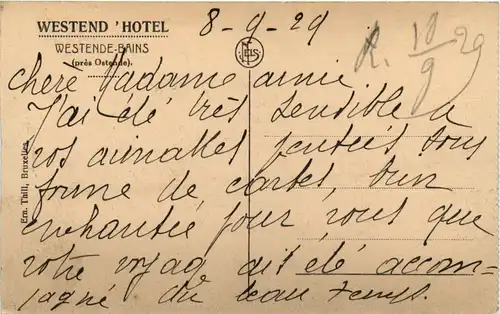 WESTEND 'HOTEL
WESTENDE-BAINS
(près Ostende).
8-9-29
R. 10/9 29
Ern. Thill, Bruxelles
chère Madame amie
J'ai été très sensible a
vos aimables pensées sous
forme de cartes, bien
enchantée pour vous que
votre voyag ait été accom-
pagné du beau temps.